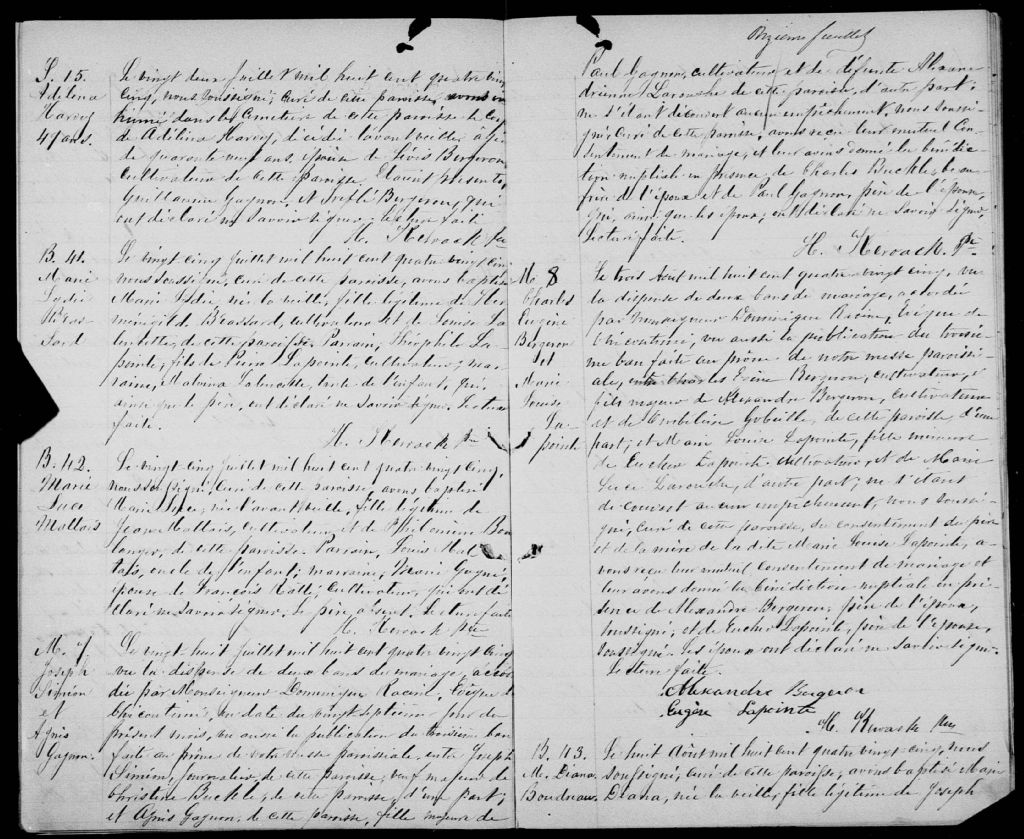 S. 15.
Adelina
Harvey
49 ans.
Le vingt deux juillet mil huit cent quatre vingt
cinq, nous soussigné, curé de cette paroisse, avons in
humé dans le cimetière de cette paroisse le corps
de Adélina Harvey, décédée l'avant veille, agée
de quarante neuf ans, épouse de Lévis Bergeron
cultivateur de cette paroisse. Etaient présents,
Guillaume Gagnon, et Bergeron, qui
ont déclaré ne savoir signer; lecture faite
H. Kerouack Ptre
B. 41.
Marie
Lydie
Bras
sard
Le vingt cinq juillet mil huit cent quatre vingt cinq
nous soussigné, curé de cette paroisse, avons baptisé
Marie Lydie née la veille, fille légitime de Her
ménégilde Brassard, cultivateur et de Louise La
, de cette paroisse. Parrain, Théophile La
pointe, fils de Lapointe, cultivateur; mar
raine, Malvina, tante de l'enfant, qui,
ainsi que le père, ont déclaré ne savoir signer. Lecture
faite.
H. Kerouack Ptre
B. 42.
Marie
Luce
Maltais
Le vingt cinq juillet mil huit cent quatre vingt cinq,
nous soussigné, curé de cette paroisse, avons baptisé
Marie Luce, née l'avant veille, fille légitime de
Jean Maltais, cultivateur et de Philomène Bou
langer, de cette paroisse. Parrain, Louis Mal
tais, oncle de l'enfant; marraine, Marie Gagné,
épouse de François, cultivateur, qui ont dé
claré ne savoir signer. Le père absent. Lecture faite
H. Kerouack Ptre
M. 7
Joseph
Siméon
et
Agnis
Gagnon.
Le vingt huit juillet mil huit cent quatre vingt cinq
vu la dispense de deux bans de mariage, accor
dée par Monseigneur Dominique Racine, Evêque de
Chicoutimi, en date du vingt septième jour du
présent mois, vu aussi la publication du troisième ban
faite au prône de notre messe paroissiale, entre Joseph
Siméon, journalier, de cette paroisse, veuf majeur de
Christine Buckle, de cette paroisse, d'une part;
et Agnis Gagnon, de cette paroisse, fille majeure de
feuillet
Paul Gagnon, cultivateur et de défunte Alexan
drienne Larouche de cette paroisse, d'autre part;
ne s'étant découvert aucun empêchement, nous soussi
gné, curé de cette paroisse, avons reçu leur mutuel con
sentement de mariage, et leur avons donné la bénédic
tion nuptiale en présence de Charles Buckle, beau
frère de l'époux et de Paul Gagnon, père de l'épouse,
qui, ainsi que les époux, ont déclaré ne savoir signer,
Lecture faite.
H. Kerouack Ptre
M. 8
Charles
Eugène
Bergeron
et
Marie
Louise
La
pointe
Le trois Aout mil huit cent quatre vingt cinq, vu
la dispense de deux bans de mariage, accordée
par Monseigneur Dominique Racine, Evêque de
Chicoutimi, vu aussi la publication du troisiè
me ban faite au prône de notre messe paroissi
ale, entre Charles Bergeron, cultivateur,
fils majeur de Alexandre Bergeron, cultivateur
et de Gobeille, de cette paroisse d'une
part; et Marie Louise Lapointe, fille mineure
de Eucher Lapointe cultivateur, et de Marie
Luce Larouche, d'autre part; ne s'étant
découvert aucun empêchement, nous soussi
gné, curé de cette paroisse, du consentement du père
et de la mère de la dite Marie Louise Lapointe, a
vons reçu leur mutuel consentement de mariage et
leur avons donné la bénédiction nuptiale en pré
sence de Alexandre Bergeron, père de l'époux,
soussigné, et de Eucher Lapointe, père de l'épouse,
soussigné. Les époux ont déclaré ne savoir signer.
Lecture faite.
Alexandre Bergeron
Eugère Lapointe
H. Kerouack Ptre
B. 43.
M. Diana
Boudreau.
Le huit Août mil huit cent quatre vingt-cinq, nous
soussigné, curé de cette paroisse, avons baptisé Marie
Diana, née la veille, fille légitime de Joseph